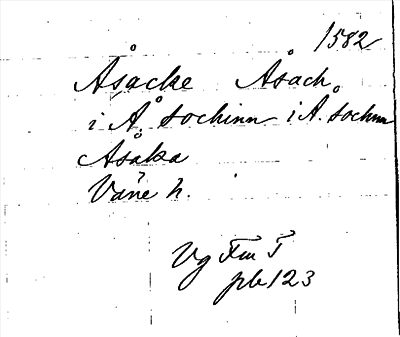 1582
Åsacke Åsach
i Å. sochinn i Å. sochnn
Åsaka
Väne h.
Vg Fm T
pb 123